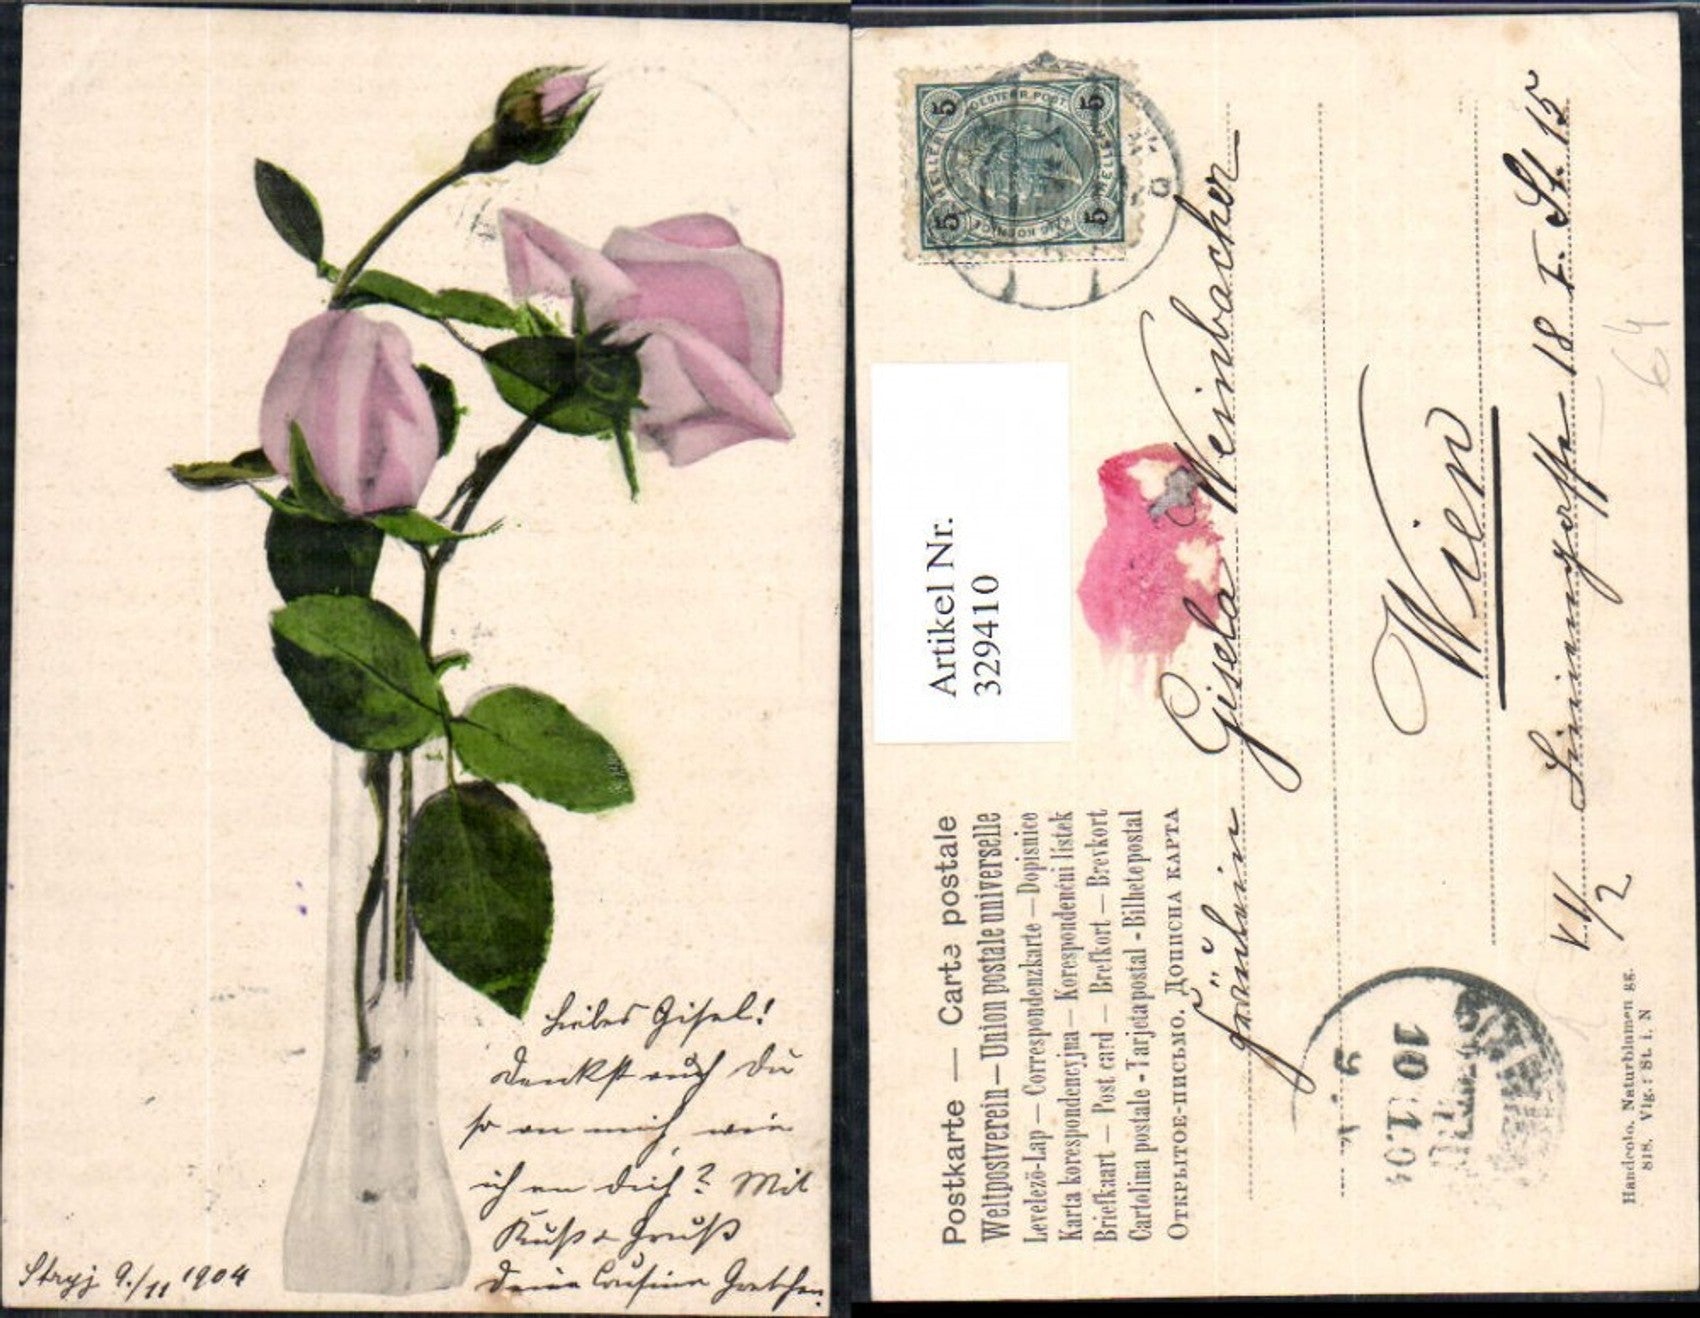 Liebes Gisel!
Denkst auch Du
so an mich, wie
ich an Dich? Mit
Kuß & Gruß
Deine Cousine Gretchen.
Stryj 9./11 1904
5 5
OESTERR. POST
HELLER HELLER
5 5
Artikel Nr.
329410
Postkarte — Carte postale
Weltpostverein — Union postale universelle
Levelező-Lap — Correspondenzkarte — Dopisnice
Karta korespondencyjna — Korespondenční lístek
Briefkaart — Post card — Brefkort — Brevkort
Cartolina postale - Tarjeta postal - Bilhete postal
Открытое-письмо. Дописна карта
Fräulein Gisela Weinbacher
Wien
VI/2 18 I. St. 15
64
9
10 11.04
Handcolo. Naturblumen gg.
818. Vig.: St. i. N